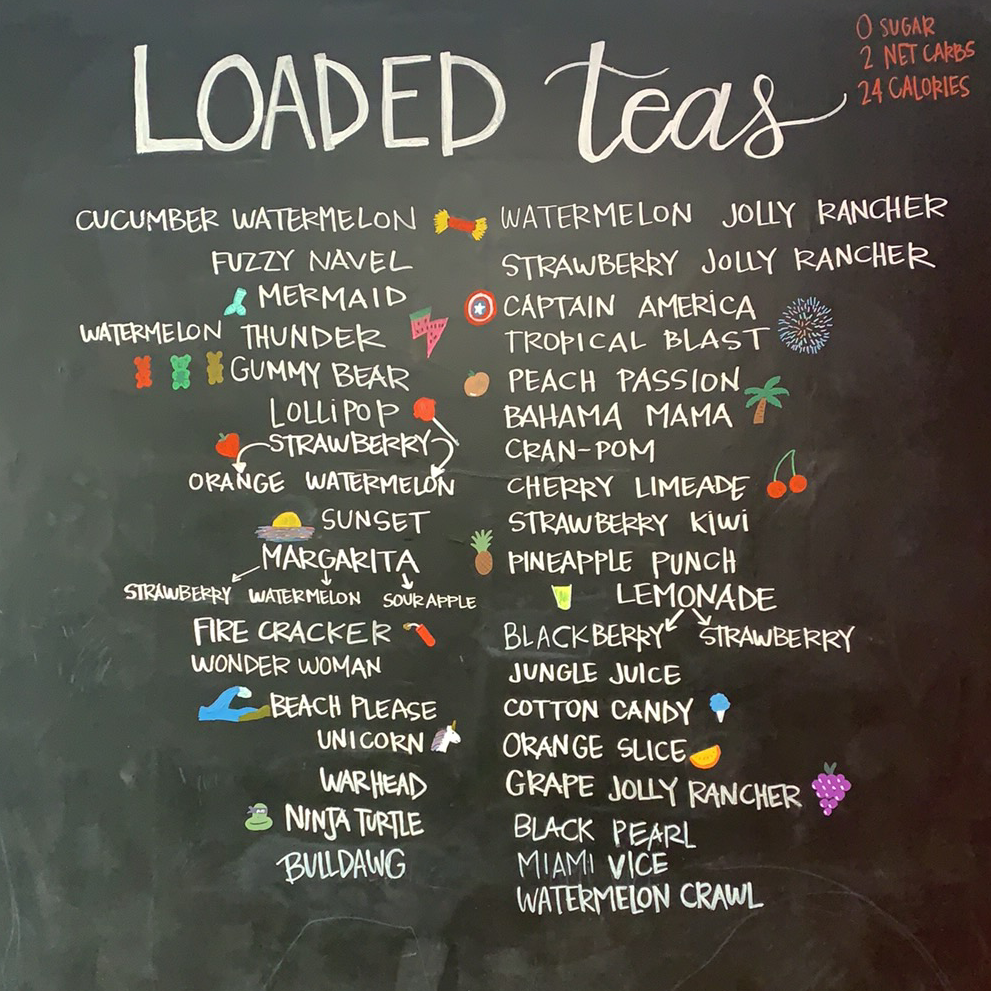 0 SUGAR
2 NET CARBS
24 CALORIES
LOADED teas
CUCUMBER WATERMELON
FUZZY NAVEL
MERMAID
WATERMELON THUNDER
GUMMY BEAR
LOLLIPOP
STRAWBERRY
ORANGE WATERMELON
SUNSET
MARGARITA
STRAWBERRY WATERMELON SOUR APPLE
FIRE CRACKER
WONDER WOMAN
BEACH PLEASE
UNICORN
WARHEAD
NINJA TURTLE
BULLDAWG
WATERMELON JOLLY RANCHER
STRAWBERRY JOLLY RANCHER
CAPTAIN AMERICA
TROPICAL BLAST
PEACH PASSION
BAHAMA MAMA
CRAN-POM
CHERRY LIMEADE
STRAWBERRY KIWI
PINEAPPLE PUNCH
LEMONADE
BLACKBERRY STRAWBERRY
JUNGLE JUICE
COTTON CANDY
ORANGE SLICE
GRAPE JOLLY RANCHER
BLACK PEARL
MIAMI VICE
WATERMELON CRAWL